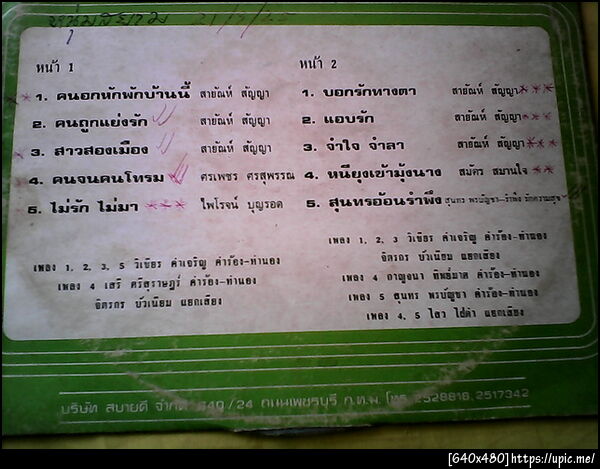 หนุ่มสยาม 21/9/25
หน้า 1
1. คนอกหักพักบ้านนี้ สายัณห์ สัญญา
2. คนถูกแย่งรัก สายัณห์ สัญญา
3. สาวสองเมือง สายัณห์ สัญญา
4. คนจนคนโทรม ศรเพชร ศรสุพรรณ
5. ไม่รัก ไม่มา ไพโรจน์ บุญรอด
เพลง 1, 2, 3, 5 วิเชียร คำเจริญ คำร้อง-ทำนอง
เพลง 4 เสรี ศรีสุราษฎร์ คำร้อง-ทำนอง
จิตรกร บัวเนียม แยกเสียง
หน้า 2
1. บอกรักทางตา สายัณห์ สัญญา
2. แอบรัก สายัณห์ สัญญา
3. จำใจ จำลา สายัณห์ สัญญา
4. หนียุงเข้ามุ้งนาง สมัคร สมานใจ
5. สุนทรอ้อนรำพึง สุนทร พรบัญชา-รำพึง รักความสุข
เพลง 1, 2, 3 วิเชียร คำเจริญ คำร้อง-ทำนอง
จิตรกร บัวเนียม แยกเสียง
เพลง 4 กาญจนา ทิพย์มาศ คำร้อง-ทำนอง
เพลง 5 สุนทร พรบัญชา คำร้อง-ทำนอง
เพลง 4, 5 ไสว ไข่ดำ แยกเสียง
บริษัท สบายดี จำกัด 540/24 ถนนเพชรบุรี ก.ท.ม. โทร. 2528818, 2517342
[640x480] https://upic.me/